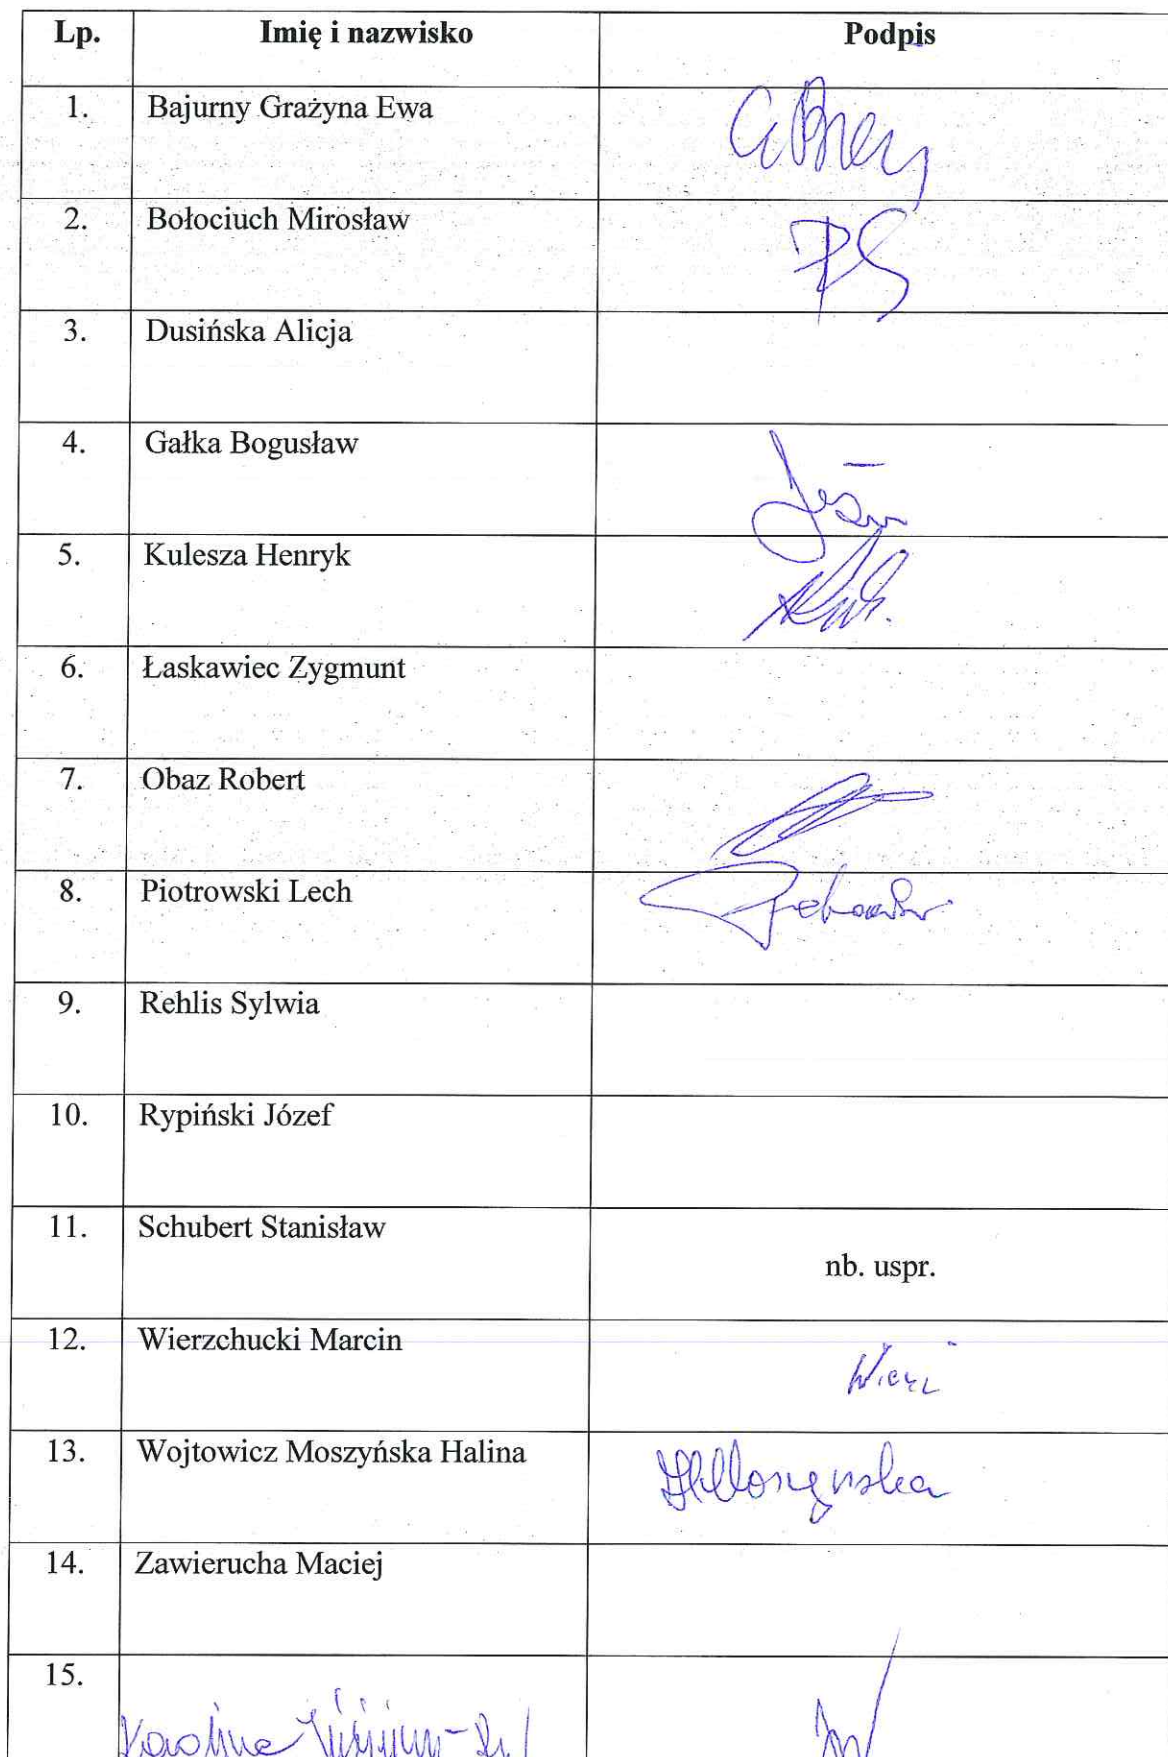 Lp. Imię i nazwisko Podpis
1. Bajurny Grażyna Ewa
2. Bołociuch Mirosław
3. Dusińska Alicja
4. Gałka Bogusław
5. Kulesza Henryk
6. Łaskawiec Zygmunt
7. Obaz Robert
8. Piotrowski Lech
9. Rehlis Sylwia
10. Rypiński Józef
11. Schubert Stanisław
nb. uspr.
12. Wierzchucki Marcin
13. Wojtowicz Moszyńska Halina
14. Zawierucha Maciej
15.
Karolina